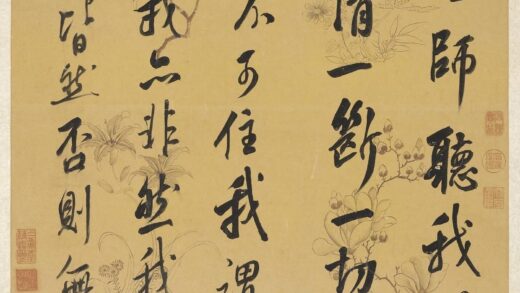 師聽我
一斷一切
不可住我謂
我亦非然我
皆然否則無